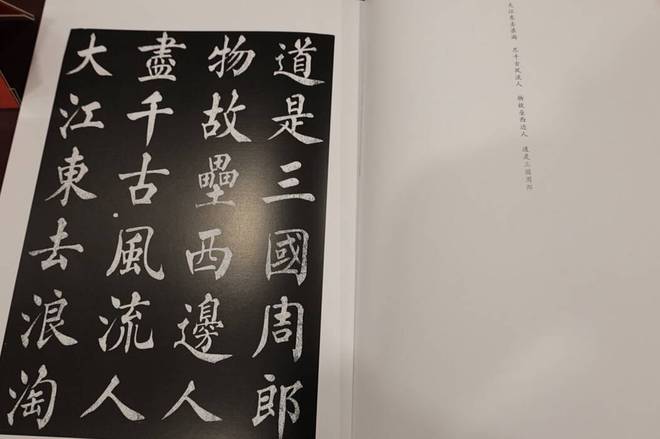 大江東去浪淘
盡千古風流人
物故壘西邊人
道是三國周郎
大江东去浪淘 尽千古风流人 物故垒西边人 道是三国周郎